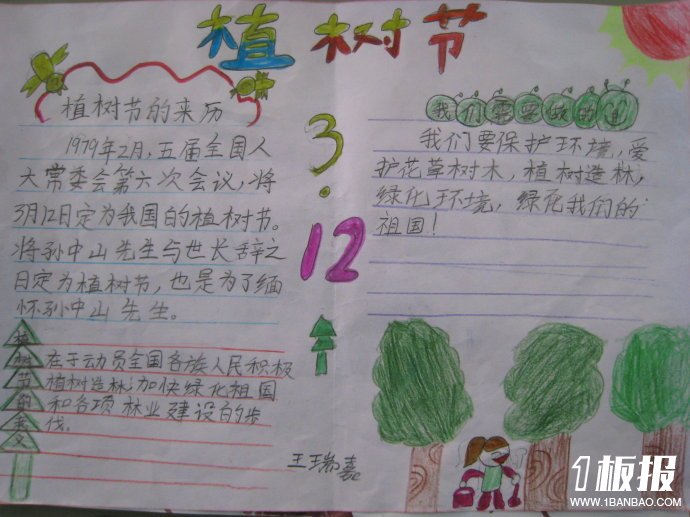 植树节
植树节的来历
1979年2月,五届全国人
大常委会第六次会议,将
3月12日定为我国的植树节。
将孙中山先生与世长辞之
日定为植树节,也是为了缅
怀孙中山先生。
植树节的意义
在于动员全国各族人民积极
植树造林,加快绿化祖国
和各项林业建设的步
伐。
3.12
我们需要做的
我们要保护环境,爱
护花草树木,植树造林,
绿化环境,绿化我们的
祖国!
王瑞嘉
1板报
WWW.1BANBAO.COM